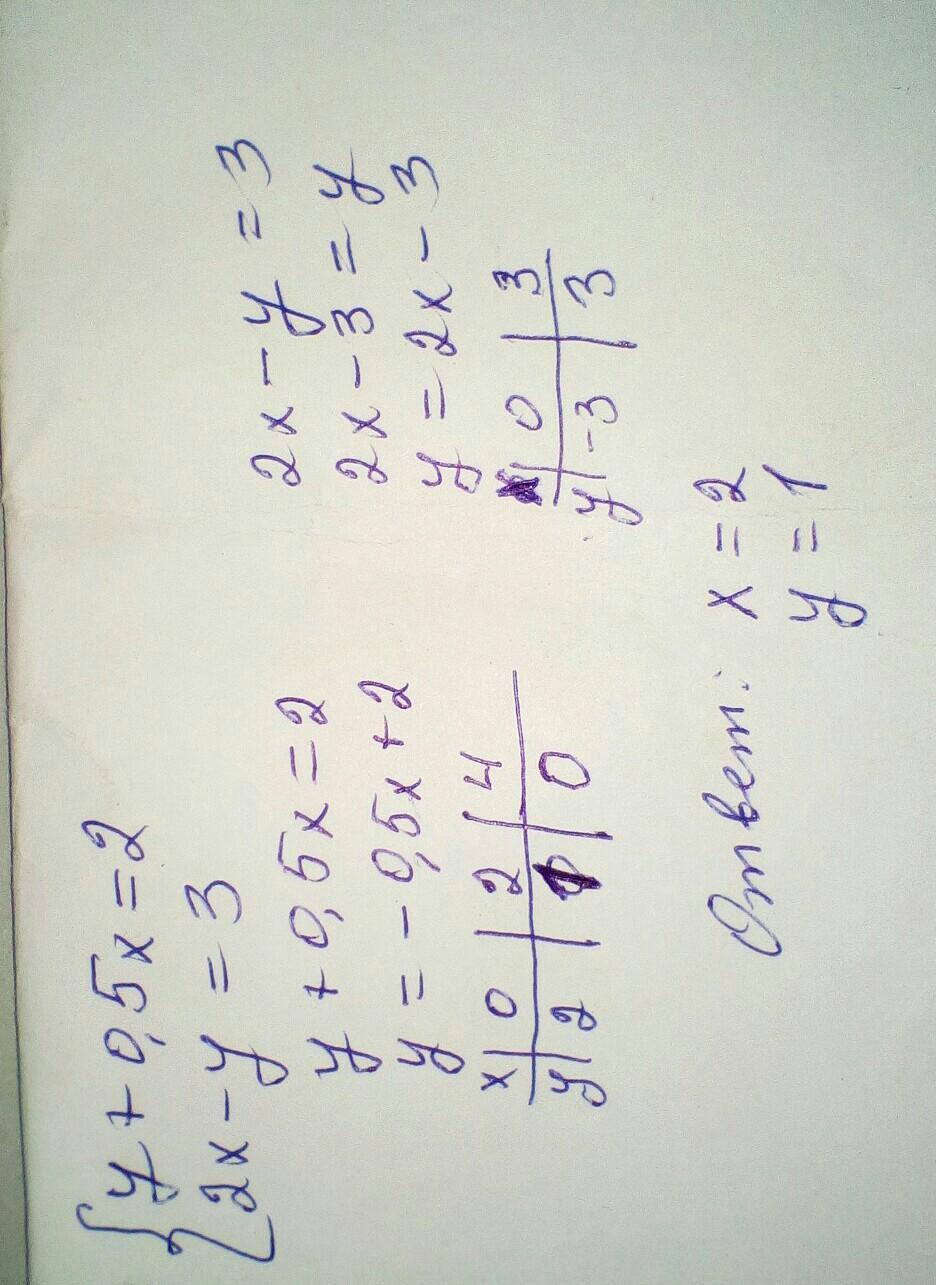 y + 0,5x = 2
2x - y = 3
y + 0,5x = 2
y = - 0,5x + 2
x 0 2 4
y 2 1 0
2x - y = 3
2x - 3 = y
y = 2x - 3
x 0 3
y -3 3
Ответ: x = 2
y = 1